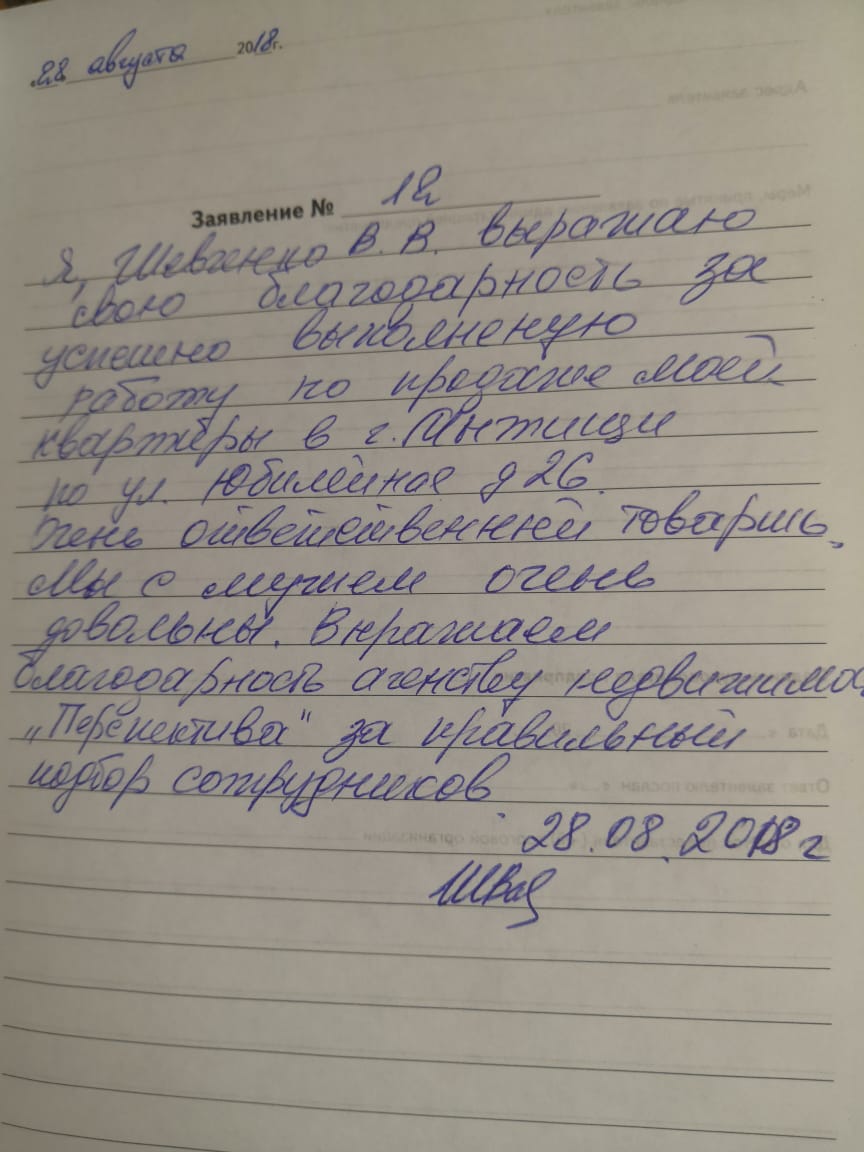 28 августа 2018 г.
Заявление № 12
Я, Шевченко В. В. выражаю
свою благодарность за
успешно выполненую
работу по продаже моей
квартиры в г.
по ул. Юбилейная д 26.
Очень ответственный товарищь.
Мы с мужем очень
довольны. Выражаем
благодарность агенству недвижимос
„Перспектива" за правильный
подбор сотрудников
28.08.2018 г